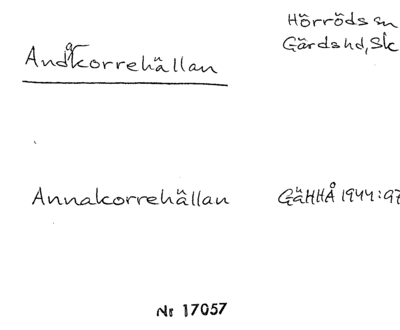 Hörröds sn
Gärds hd, Sk
Andåkorrehällan
Annakorrehällan GäHHÅ 1944:97
Nr 17057